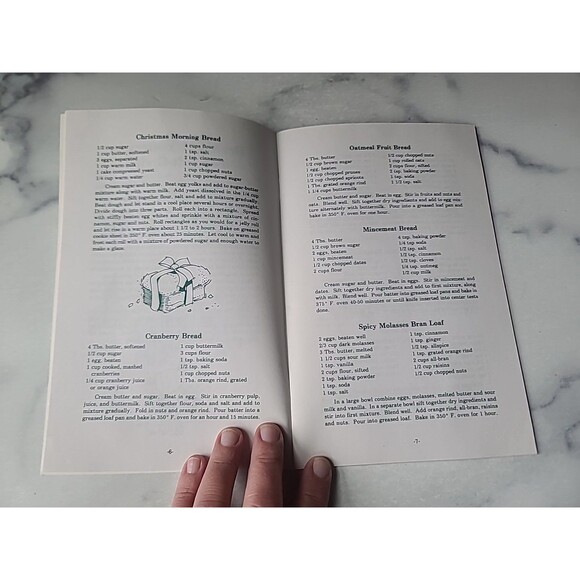 Christmas Morning Bread
1/2 cup sugar
1 cup butter, softened
2 eggs, separated
1 cup warm milk
1 cake compressed yeast
1/4 cup warm water
4 cups flour
1 tsp. salt
2 tsp. cinnamon
1 cup sugar
1 cup chopped nuts
3/4 cup powdered sugar
Cream sugar and butter. Beat egg yolks and add to sugar-butter
mixture along with warm milk. Add yeast dissolved in the 1/4 cup
warm water. Sift together flour, salt, and add to mixture gradually.
Beat dough and let stand in a cool place several hours or overnight.
Divide dough into three parts. Roll each into a rectangle. Spread
with stiffly beaten egg whites and sprinkle with a mixture of cin-
namon, sugar and nuts. Roll rectangles as you would for a jelly roll
and let rise in a warm place about 1 1/2 to 2 hours. Bake on greased
cookie sheet in 375° F. oven about 25 minutes. Let cool to warm and
frost each roll with a mixture of powdered sugar and enough water to
make a glaze.
Cranberry Bread
4 Tbs. butter, softened
1/2 cup sugar
1 egg, beaten
1 cup cooked, mashed
cranberries
1/4 cup cranberry juice
or orange juice
1 cup buttermilk
3 cups flour
1 tsp. baking soda
1/2 tsp. salt
1 cup chopped nuts
1 Tbs. orange rind, grated
Cream butter and sugar. Beat in egg. Stir in cranberry pulp,
juice, and buttermilk. Sift together flour, soda and salt and add to
mixture gradually. Fold in nuts and orange rind. Pour batter into
greased loaf pan and bake in 350° F. oven for an hour and 15 minutes.
-6-
Oatmeal Fruit Bread
4 Tbs. butter
1/2 cup brown sugar
1 egg, beaten
1/2 cup chopped prunes
1/2 cup chopped apricots
1 Tbs. grated orange rind
1 1/4 cups buttermilk
1/2 cup chopped nuts
1 cup rolled oats
2 cups flour
2 tsp. baking powder
1 tsp. soda
1 1/2 tsp. salt
Cream butter and sugar. Beat in egg. Stir in fruits and nuts and
oats. Blend well. Sift together dry ingredients and add to egg mix-
ture alternately with buttermilk. Pour into greased loaf pan and
bake in 350° F. oven for one hour.
Mincemeat Bread
4 Tbs. butter
1/2 cup brown sugar
2 eggs, beaten
1 cup mincemeat
1/2 cup chopped dates
2 cups flour
4 tsp. baking powder
1/4 tsp soda
1/2 tsp. salt
1/2 tsp. cinnamon
1/2 tsp. cloves
1/4 tsp. nutmeg
1/2 cup milk
Cream sugar and butter. Beat in eggs. Stir in mincemeat and
dates. Sift together dry ingredients and add to first mixture, along
with milk. Blend well. Pour batter into greased loaf pans and bake in
375° F. oven 40-50 minutes or until knife inserted into center tests
done.
Spicy Molasses Bran Loaf
2 eggs, beaten well
2/3 cup dark molasses
3 Tbs. butter, melted
1 1/2 cups sour milk
1 tsp. vanilla
2 cups flour, sifted
2 tsp. baking powder
1 tsp. soda
1 tsp. salt
1 tsp. cinnamon
1 tsp. ginger
1/2 tsp. allspice
1 tsp. grated orange rind
2 cups all-bran
1/2 cup raisins
1/2 cup chopped nuts
In a large bowl combine eggs, molasses, melted butter and sour
milk and vanilla. In a separate bowl sift together dry ingredients and
stir into first mixture. Blend well. Add orange rind, all-bran, raisins
and nuts. Pour into greased loaf. Bake in 350° F. oven for 1 hour.
-7-